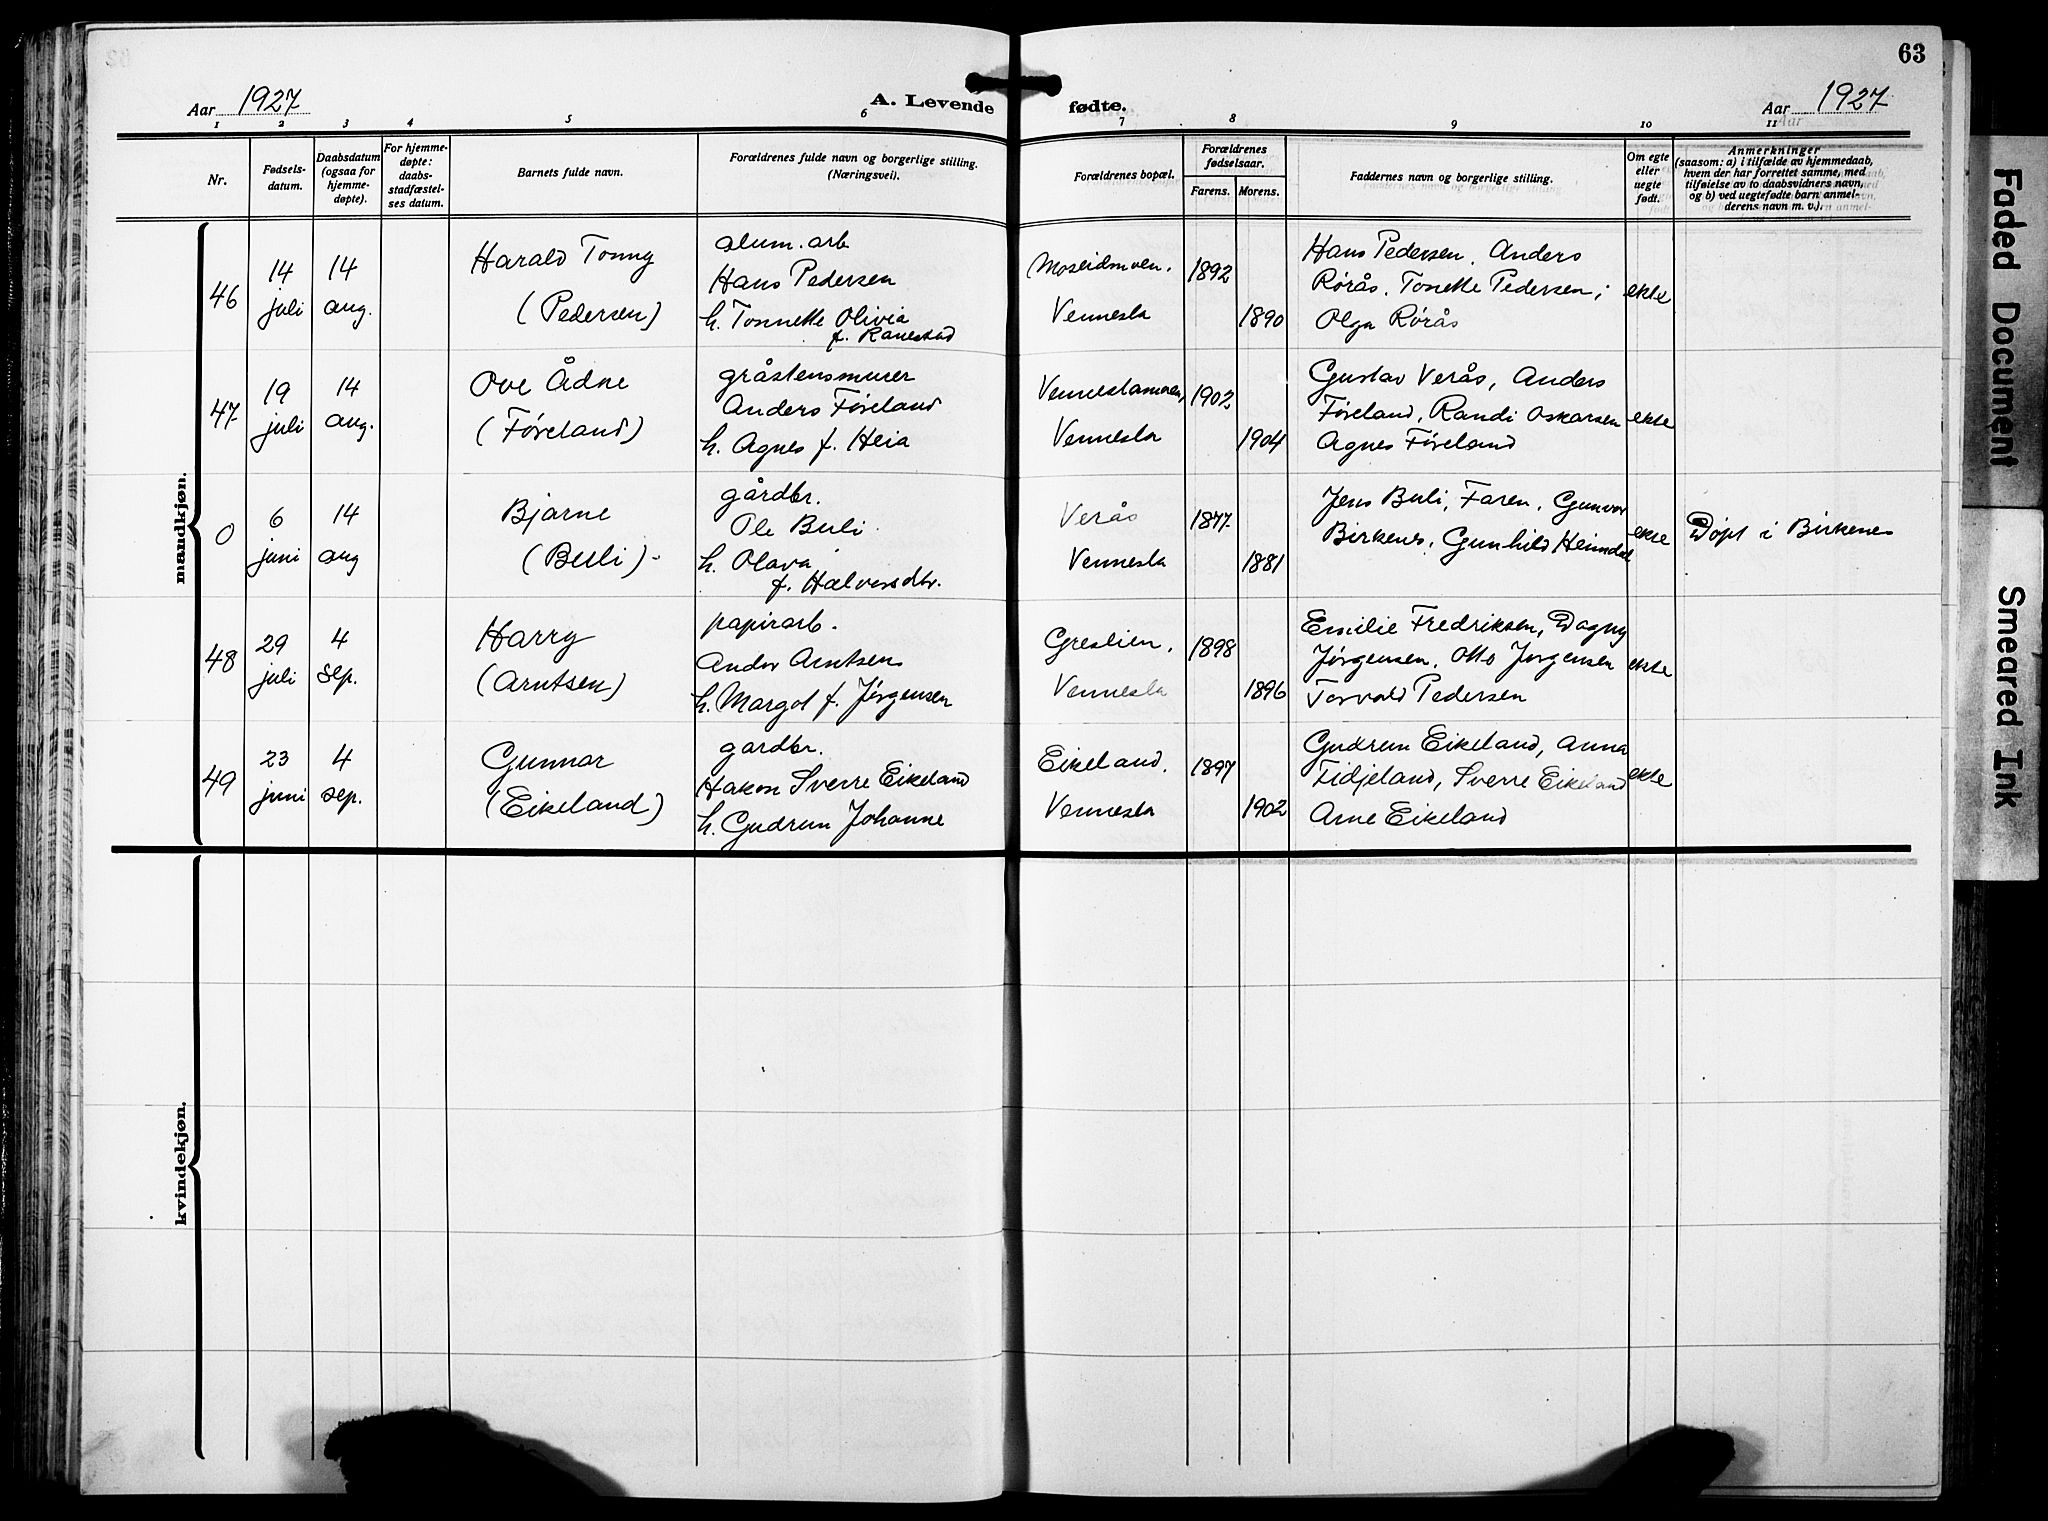 63
Aar 1927
A. Levende fødte.
Aar 1927
1 2 3 4 5 6 7 8 9 10 11
Nr.
Fødsels-
datum.
Daabsdatum
(ogsaa for
hjemme-
døpte).
For hjemme-
døpte:
daabs-
stadfæstel-
ses datum.
Barnets fulde navn.
Forældrenes fulde navn og borgerlige stilling.
(Næringsvei).
Forældrenes bopæl.
Forældrenes
fødselsaar.
Farens. Morens.
Faddernes navn og borgerlige stilling.
Om egte
eller
uegte
født.
Anmerkninger
(saasom: a) i tilfælde av hjemmedaab,
hvem der har forrettet samme, med
tilføielse av to daabsvidners navn,
og b) ved uegtefødte barn anmel-
derens navn m. v.).
mandkjøn.
46
14
juli
14
aug.
Harald Tonny
(Pedersen)
alum. arb
Hans Pedersen
h. Tonnette Olivia
f. Ranestad
Moseidmoen.
Vennesla
1892
1890
Hans Pedersen. Anders
Rørås. Tonette Pedersen;
Olga Rørås
ekte
47
19
juli
14
aug.
Ove Ådne
(Føreland)
gråstensmurer
Anders Føreland
h. Agnes f. Heia
Venneslamoen,
Vennesla
1902
1904
Gustav Verås, Anders
Føreland, Randi Oskarsen
Agnes Føreland
ekte
0
6
juni
14
aug
Bjarne
(Beili)
gårdbr.
Ole Beili
h. Olava
f. Halvorsdtr.
Verås
Vennesla
1877
1881
Jens Beili, Faren, Gunvor
Birkenes, Gunhild Heimdal
ekte
Døpt i Birkenes
48
29
juli
4
sep.
Harry
(Arntsen)
papirarb.
Andor Arntsen
h. Margot f. Jørgensen
Greslien.
Vennesla
1898
1896
Emilie Fredriksen, Dagny
Jørgensen. Otto Jørgensen
Torvald Pedersen
ekte
49
23
juni
4
sep.
Gunnar
(Eikeland)
gardbr.
Hakon Sverre Eikeland
h. Gudrun Johanne
Eikeland.
Vennesla
1897
1902
Gudrun Eikeland, Anna
Fidjeland, Sverre Eikeland
Arne Eikeland
ekte
kvindekjøn.
Faded Document
Smeared Ink